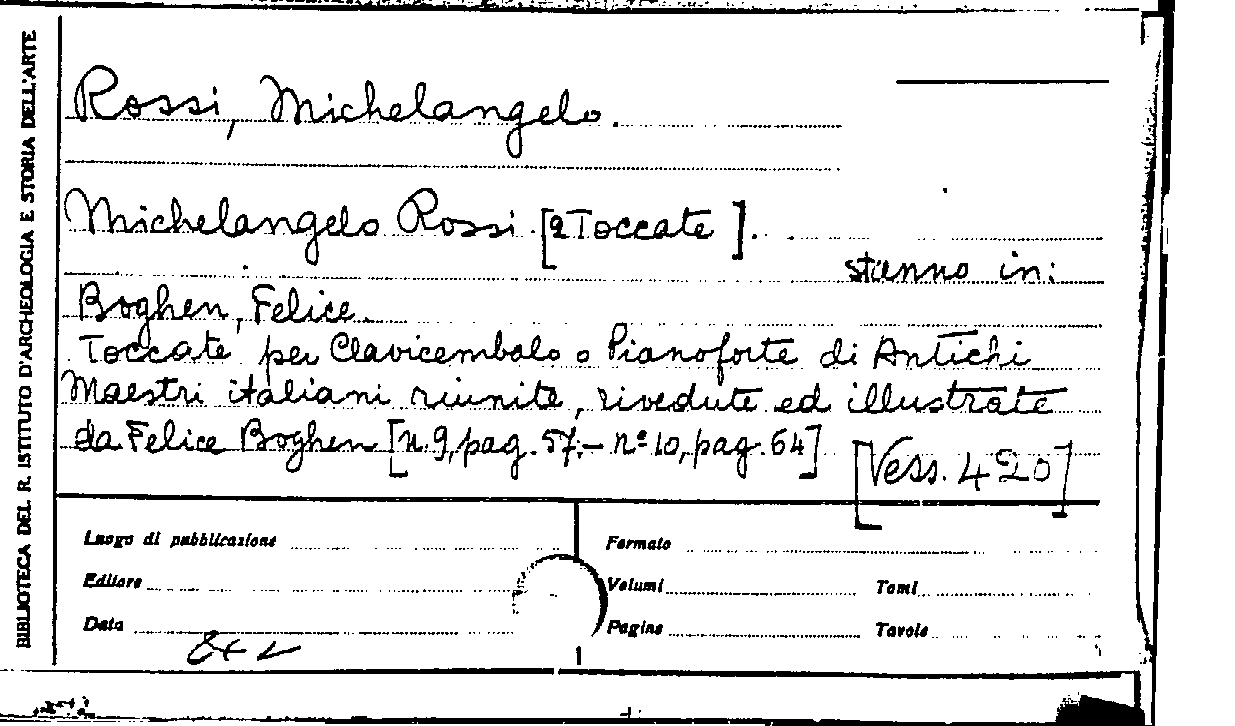 BIBLIOTECA DEL R. ISTITUTO D'ARCHEOLOGIA E STORIA DELL'ARTE
Rossi, Michelangelo.
Michelangelo Rossi [2 Toccate].
stanno in:
Boghen, Felice.
Toccate per Clavicembalo o Pianoforte di Antichi
Maestri italiani riunite, rivedute ed illustrate
da Felice Boghen [n. 9, pag. 57.- nº 10, pag. 64]
[Vess. 420]
Luogo di pubblicazione
Formato
Editore
Volumi
Tomi
Data
Pagine
Tavole